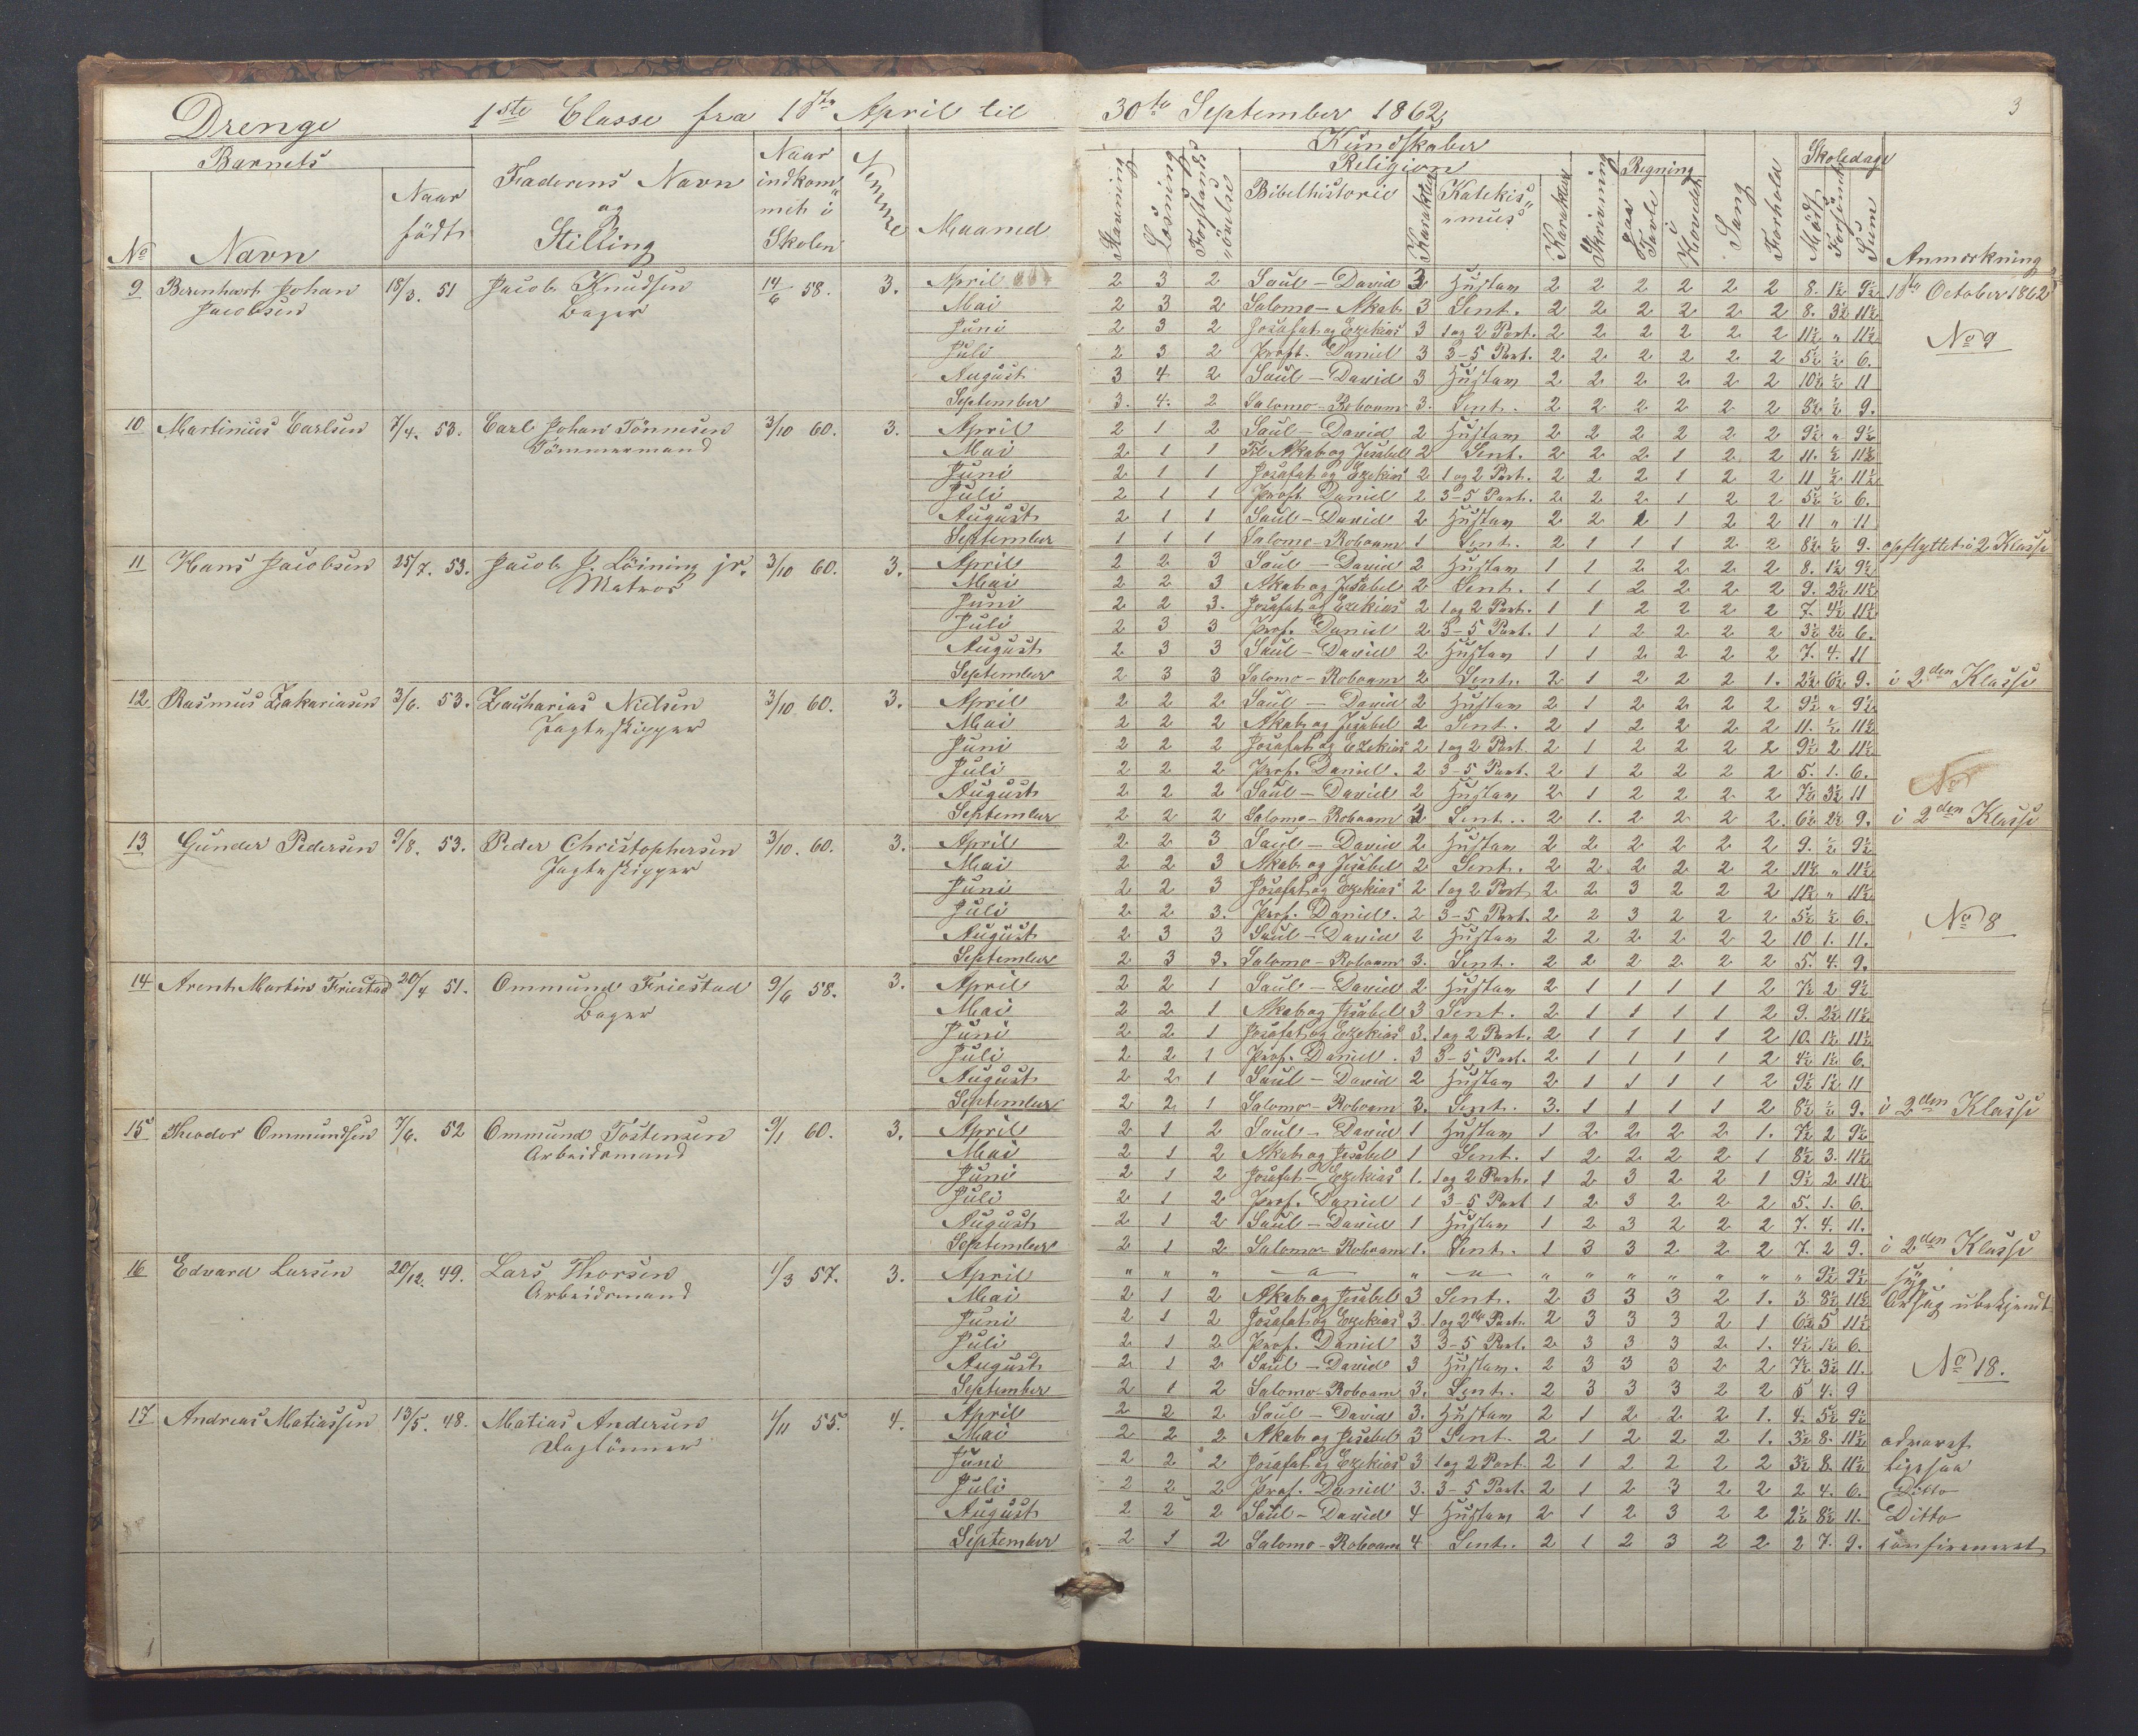 Drenge 1ste Classe fra 1ste April til 30te September 1862. 3
Barnets
No
Navn
Naar født
Faderens Navn og Stilling
Naar indkommet i Skolen
Nemme
Maaned
Kundskaber
Stavning
Læsning
Forstandsøvelse
Religion
Bibelhistorie
Karakter
Katekismus
Karakter
Skrivning
Regning
paa Tavle
i Hovedet
Sang
Forhold
Skoledage
Mødt
Forsømt
Sum
Anmærkning
9 Berenhart Johan Jacobsen 18/3. 51 Jacob Knudsen Bager 14/6 58. 3.
April 2 3 2 Saul – David 3 Hustav 2 2 2 2 2 2 8. 1½ 9½ 1ste October 1862
Mai 2 3 2 Salomo – Akab 3 Sent. 2 2 2 2 2 2 8. 3½ 11½
Juni 2 3 2 Josafat og Ezekias 3 1 og 2 Part. 2 2 2 2 2 2 11½ " 11½ No 9
Juli 2 3 2 Prof. Daniel 3 3–5 Part. 2 2 2 2 2 2 5½ ½ 6.
August 3 4 2 Saul – David 3 Hustav 2 2 2 2 2 2 10½ ½ 11
September 3. 4. 2 Salomo – Roboam 3. Sent. 2 2 2 2 2 2 8½ ½ 9.
10 Martinius Carlsen 7/4. 53. Carl Johan Tönnesen Tömmermand 3/10 60. 3.
April 2 1 2 Saul – David 2 Hustav 2 2 2 2 2 2 9½ " 9½
Mai 2 1 1 Til Akab og Jesabel 2 Sent. 2 2 2 1 2 2 11. ½ 11½
Juni 2 1 1 Josafat og Ezekias 2 1 og 2 Part. 2 2 2 1 2 2 11 ½ 11½
Juli 2 1 1 Prof. Daniel 2 3–5 Part. 2 2 2 1 2 2 5½ ½ 6.
August 2 1 1 Saul – David 2 Hustav 2 2 2 1 2 2 11 " 11
September 1 1 1 Salomo – Roboam 1 Sent. 2 1 1 1 2 2 8½ ½ 9. opflyttet i 2 Klasse
11 Hans Jacobsen 25/7. 53. Jacob J. Löining jr. Matros 3/10 60. 3.
April 2 2 3 Saul – David 2 Hustav 1 1 2 2 2 2 8. 1½ 9½
Mai 2 2 3 Akab og Jesabel 2 Sent. 1 1 2 2 2 2 9. 2½ 11½
Juni 2 2 3. Josafat og Ezekias 2 1 og 2 Part. 1 1 2 2 2 2 7. 4½ 11½
Juli 2 3 3 Prof. Daniel 2 3–5 Part. 1 1 2 2 2 2 3½ 2½ 6.
August 2 3 3 Saul – David 2 Hustav 1 1 2 2 2 2 7. 4. 11
September 2 3 3 Salomo – Roboam 2 Sent. 2 1 2 2 2 1. 2½ 6½ 9. i 2den Klasse
12 Rasmus Zakariasen 3/6. 53. Zacharias Nielsen Jagteskipper 3/10 60. 3.
April 2 2 2 Saul – David 2 Hustav 2 1 2 2 2 2 9½ " 9½
Mai 2 2 2 Akab og Jesabel 2 Sent. 2 1 2 2 2 2 11. ½ 11½
Juni 2 2 2 Josafat og Ezekias 2 1 og 2 Part. 2 1 2 2 2 2 9½ 2 11½
Juli 2 2 2 Prof. Daniel. 2 3–5 Part. 2 1 2 2 2 2 5. 1. 6. No
August 2 2 2 Saul – David 2 Hustav 2 1 2 2 2 2 7½ 3½ 11
September 2 2 2 Salomo – Roboam 2 Sent.. 2 1. 2 2 2 2. 6½ 2½ 9. i 2den Klasse
13 Gunder Pedersen 9/8. 53. Peder Christophersen Jagteskipper 3/10. 60. 3.
April 2 2 3 Saul – David 2 Hustav 2 2 2 2 2 2 9. ½ 9½
Mai 2 2 3 Akab og Jesabel 2 Sent. 2 2 2 2 2 2 11½ " 11½
Juni 2 2 3 Josafat og Ezekias 2 1 og 2 Part 2 2 3 2 2 2 11½ " 11½
Juli 2 2 3. Prof. Daniel. 2 3–5 Part. 2 2 3 2 2 2 5½ ½ 6. No 8
August 2 3 3 Saul – David 2 Hustav 2 2 2 2 2 2 10 1. 11.
September 2 3 3. Salomo – Roboam 3. Sent. 2 2 2 2 2 2 5. 4. 9.
14 Arent Martin Friestad 20/4 51. Ommund Friestad Bager 9/6 58. 3.
April 2 2 1 Saul – David 2 Hustav 2 1 1 1 1 2 7½ 2 9½
Mai 2 2 1 Akab og Jesabel 3 Sent. 2 1 1 1 1 2 9. 2½ 11½
Juni 2 2 1 Josafat og Ezekias 3. 1 og 2 Part. 2 1 1 1 1 2 10. 1½ 11½
Juli 2 2 1 Prof. Daniel. 3 3–5 Part. 2 1 1 1 1 2 4½ 1½ 6.
August 2 2 1 Saul – David 2 Hustav 2 1 1 1 1 2 9½ 1½ 11
September 2 2 1 Salomo – Roboam 3. Sent. 3. 1 1 1 1 2 8½ ½ 9. i 2den Klasse
15 Theodor Ommundsen 7/6. 52 Ommund Tostensen Arbeidsmand 9/1 60. 3.
April 2 1 2 Saul – David 1 Hustav 1 2 2 2 2 1. 7½ 2 9½
Mai 2 1 2 Akab og Jesabel 1 Sent. 1 2 2 2 2 1 8½ 3. 11½
Juni 2 1 2 Josafat – Ezekias 1. 1 og 2 Part. 1 2 3 2 2 1 9½ 2 11½
Juli 2 1 2 Prof. Daniel 1 3–5 Part 1 2 3 2 2 2 5. 1. 6.
August 2 1 2 Saul – David 1 Hustav 1 2 3 2 2 2 7. 4. 11.
September 2 1 2 Salomo – Roboam 1. Sent. 1 3 3 2 2 2 7. 2 9. i 2den Klasse
16 Edvard Larsen 20/12. 49. Lars Thorsen Arbeidsmand 1/3 57. 3.
April " " " – " – " – " – " " " " " " " 9½ 9½ syg.
Mai 2 1 2 Akab og Jesabel 3 Sent. 2 3 3 3 2 1. 3. 8½ 11½ Aarsag ubekjendt
Juni 2 1 2 Josafat og Ezekias 3. 1 og 2de Part. 2 3 3 3 2 1 6½ 5 11½
Juli 2 1 2 Prof. Daniel 3 3–5 Part. 2 3 3 3 2 1. 4½ 1½ 6.
August 2 1 2 Saul – David 3 Hustav. 2 3 3 3 2 2 7½ 3½ 11. No 18.
September 2 1 2 Salomo – Roboam 3. Sent. 2 3 3 3 2 2 5 4. 9
17 Andreas Matiassen 13/5. 48. Matias Andersen Daglönner 1/11 55. 4.
April 2 2 2 Saul – David 3. Hustav 2 1 2 2 2 1. 4. 5½ 9½
Mai 2 2 2 Akab og Jesabel 3 Sent. 2 1 2 2 2 1. 3½ 8. 11½ advaret
Juni 2 2 2 Josafat og Ezekias 3 1 og 2 Part. 2 1 2 2 2 2 3½ 8. 11½ ligesaa
Juli 2 2 2 Prof. Daniel 3. 3–5 Part. 2 1 2 3 2 2 2 4. 6. Ditto
August 2 2 2 Saul – David 4 Hustav 2 1 2 3 2 2 2½ 8½ 11. Ditto
September 2 1 2 Salomo – Roboam 4 Sent. 2 1 2 3 2 2 2 7. 9. confirmeret